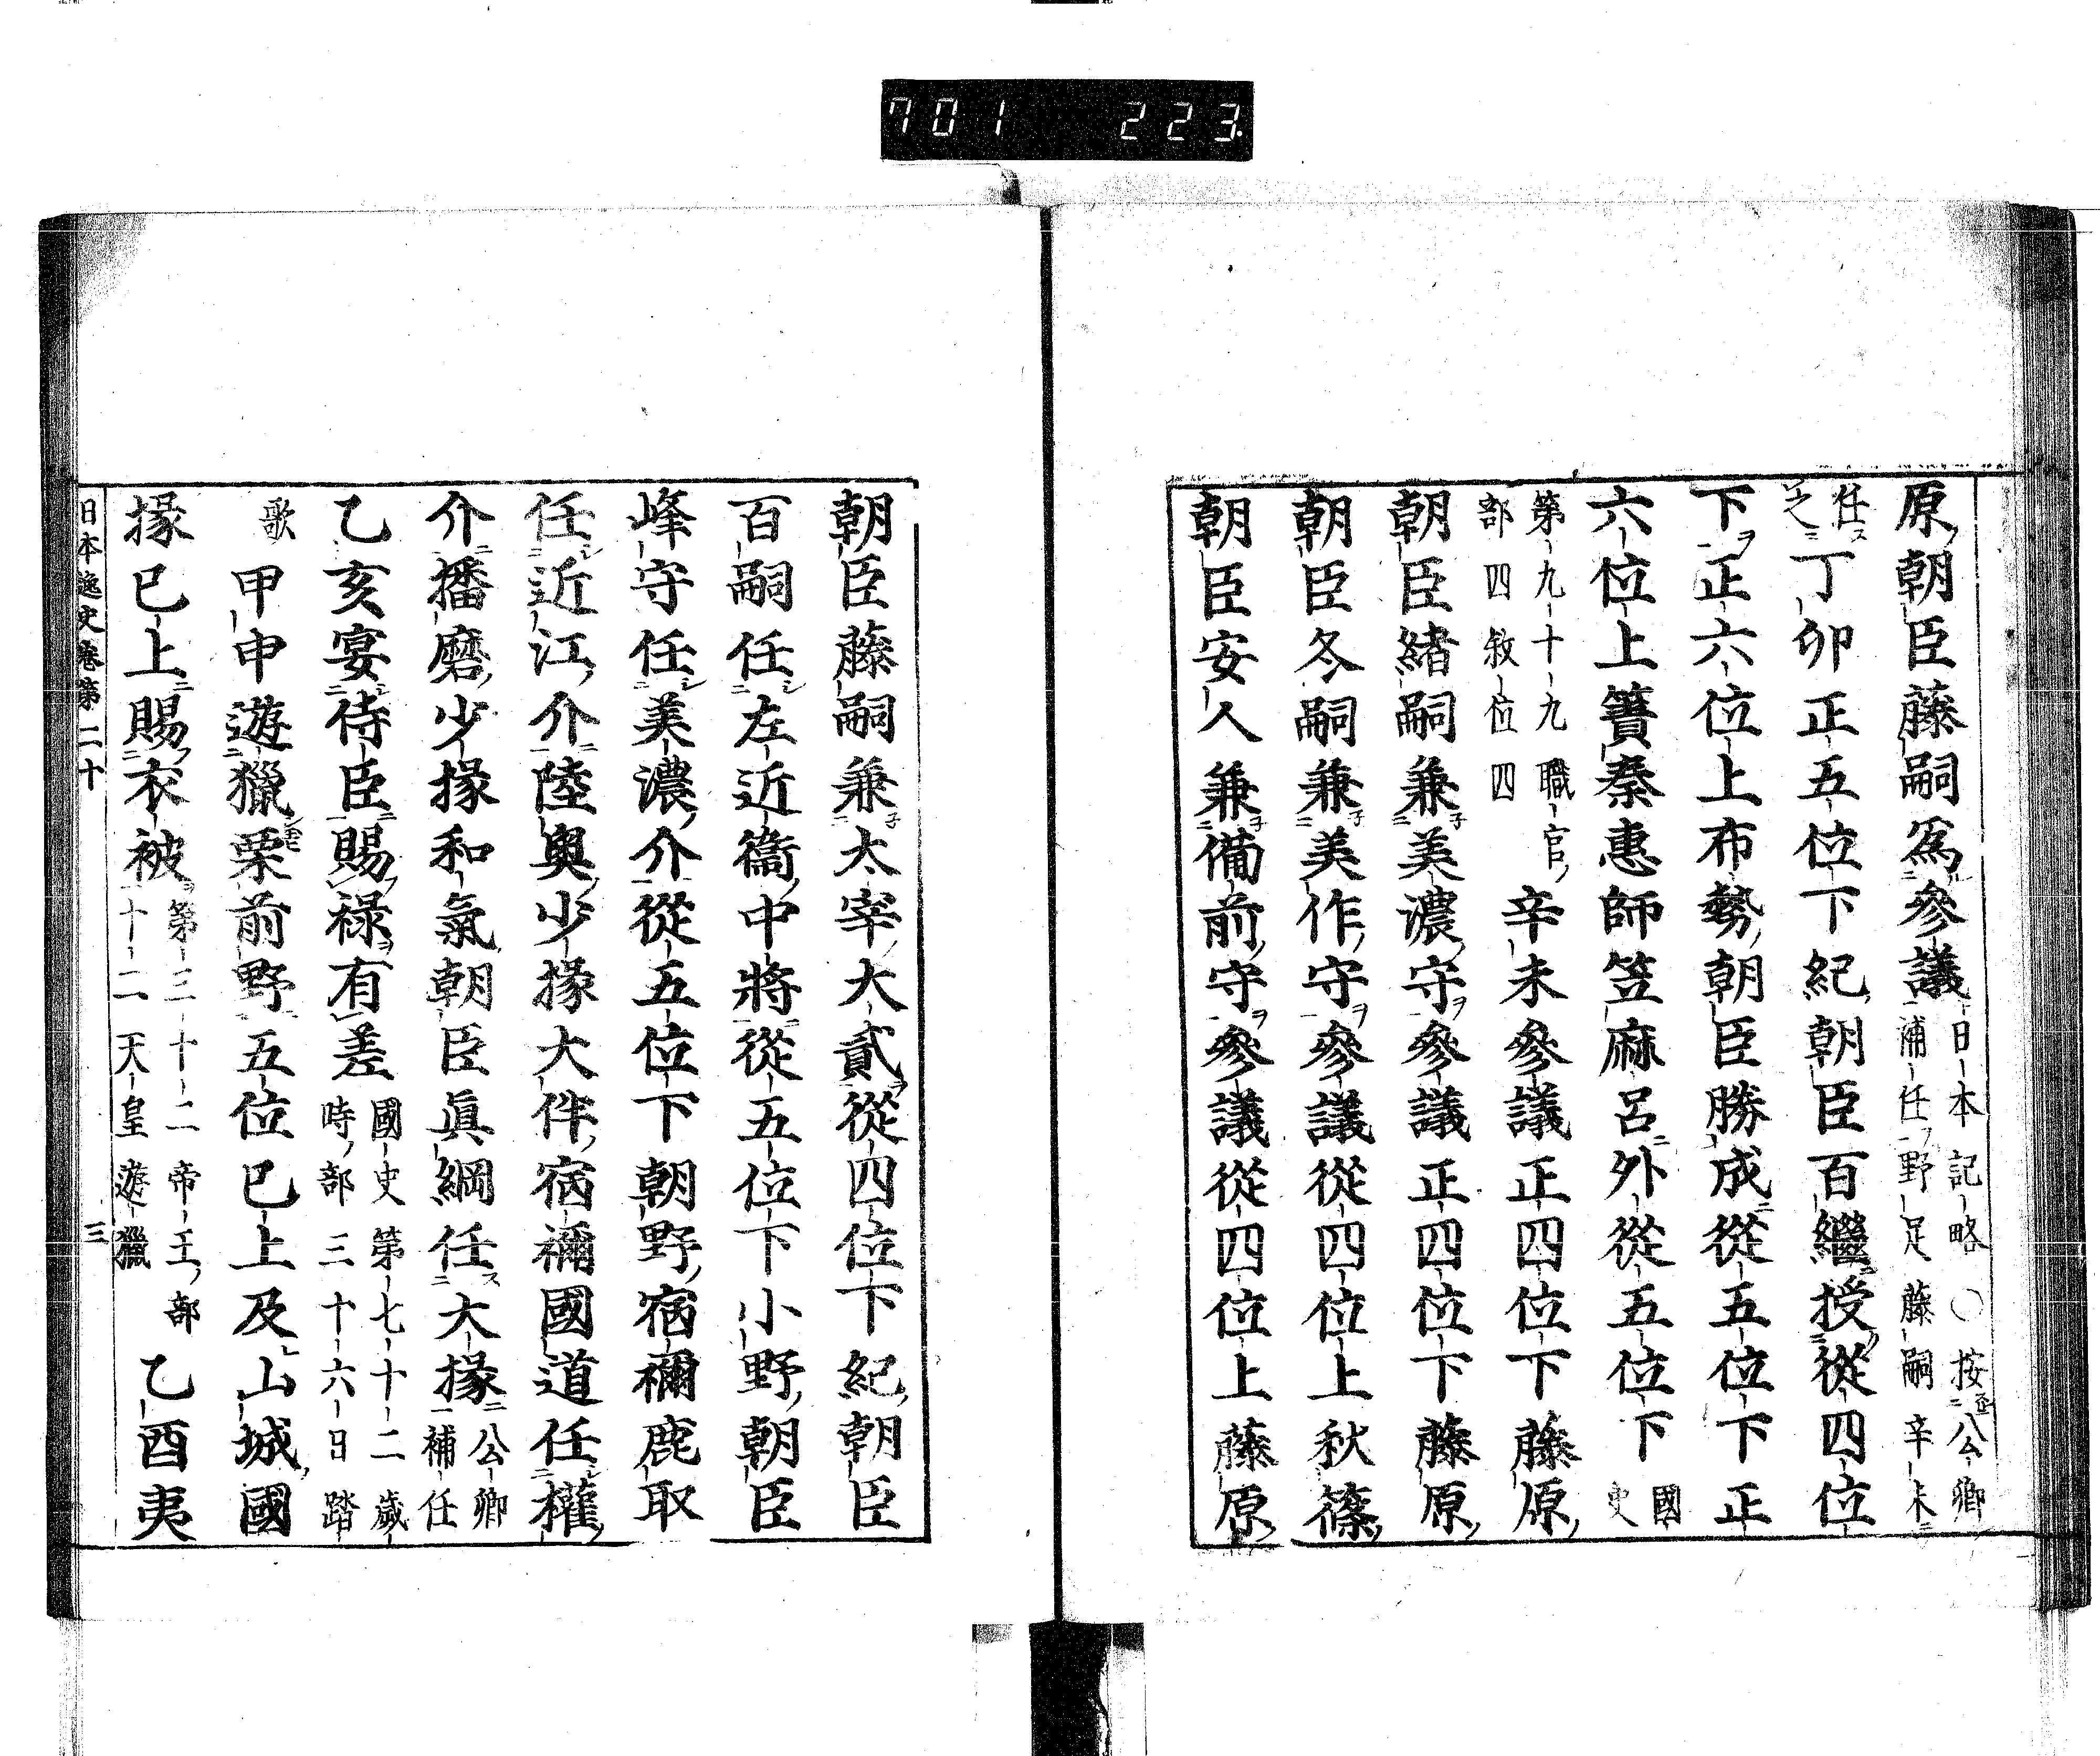 701 223
原朝臣藤嗣爲參議日本記略○按公卿補任野足藤嗣辛未
任之丁卯正五位下紀朝臣百繼授從四位
下正六位上布勢朝臣勝成從五位下正
六位上簀秦惠師笠麻呂外從五位下國史
第九十九職官部四敘位四辛未參議正四位下藤原
朝臣緖嗣兼美濃守參議正四位下藤原
朝臣冬嗣兼美作守參議從四位上秋篠
朝臣安人兼備前守參議從四位上藤原
朝臣藤嗣兼太宰大貳從四位下紀朝臣
百嗣任左近衞中將從五位下小野朝臣
峰守任美濃介從五位下朝野宿禰鹿取
任近江介陸奧少掾大伴宿禰國道任權
介播磨少掾和氣朝臣眞綱任大掾公卿補任
乙亥宴侍臣賜祿有差國史第七十二歲時部三十六日踏
歌甲申遊獵栗前野五位已上及山城國
掾已上賜衣被第三十二帝王部十二天皇遊獵乙酉夷
日本逸史卷第二十
三